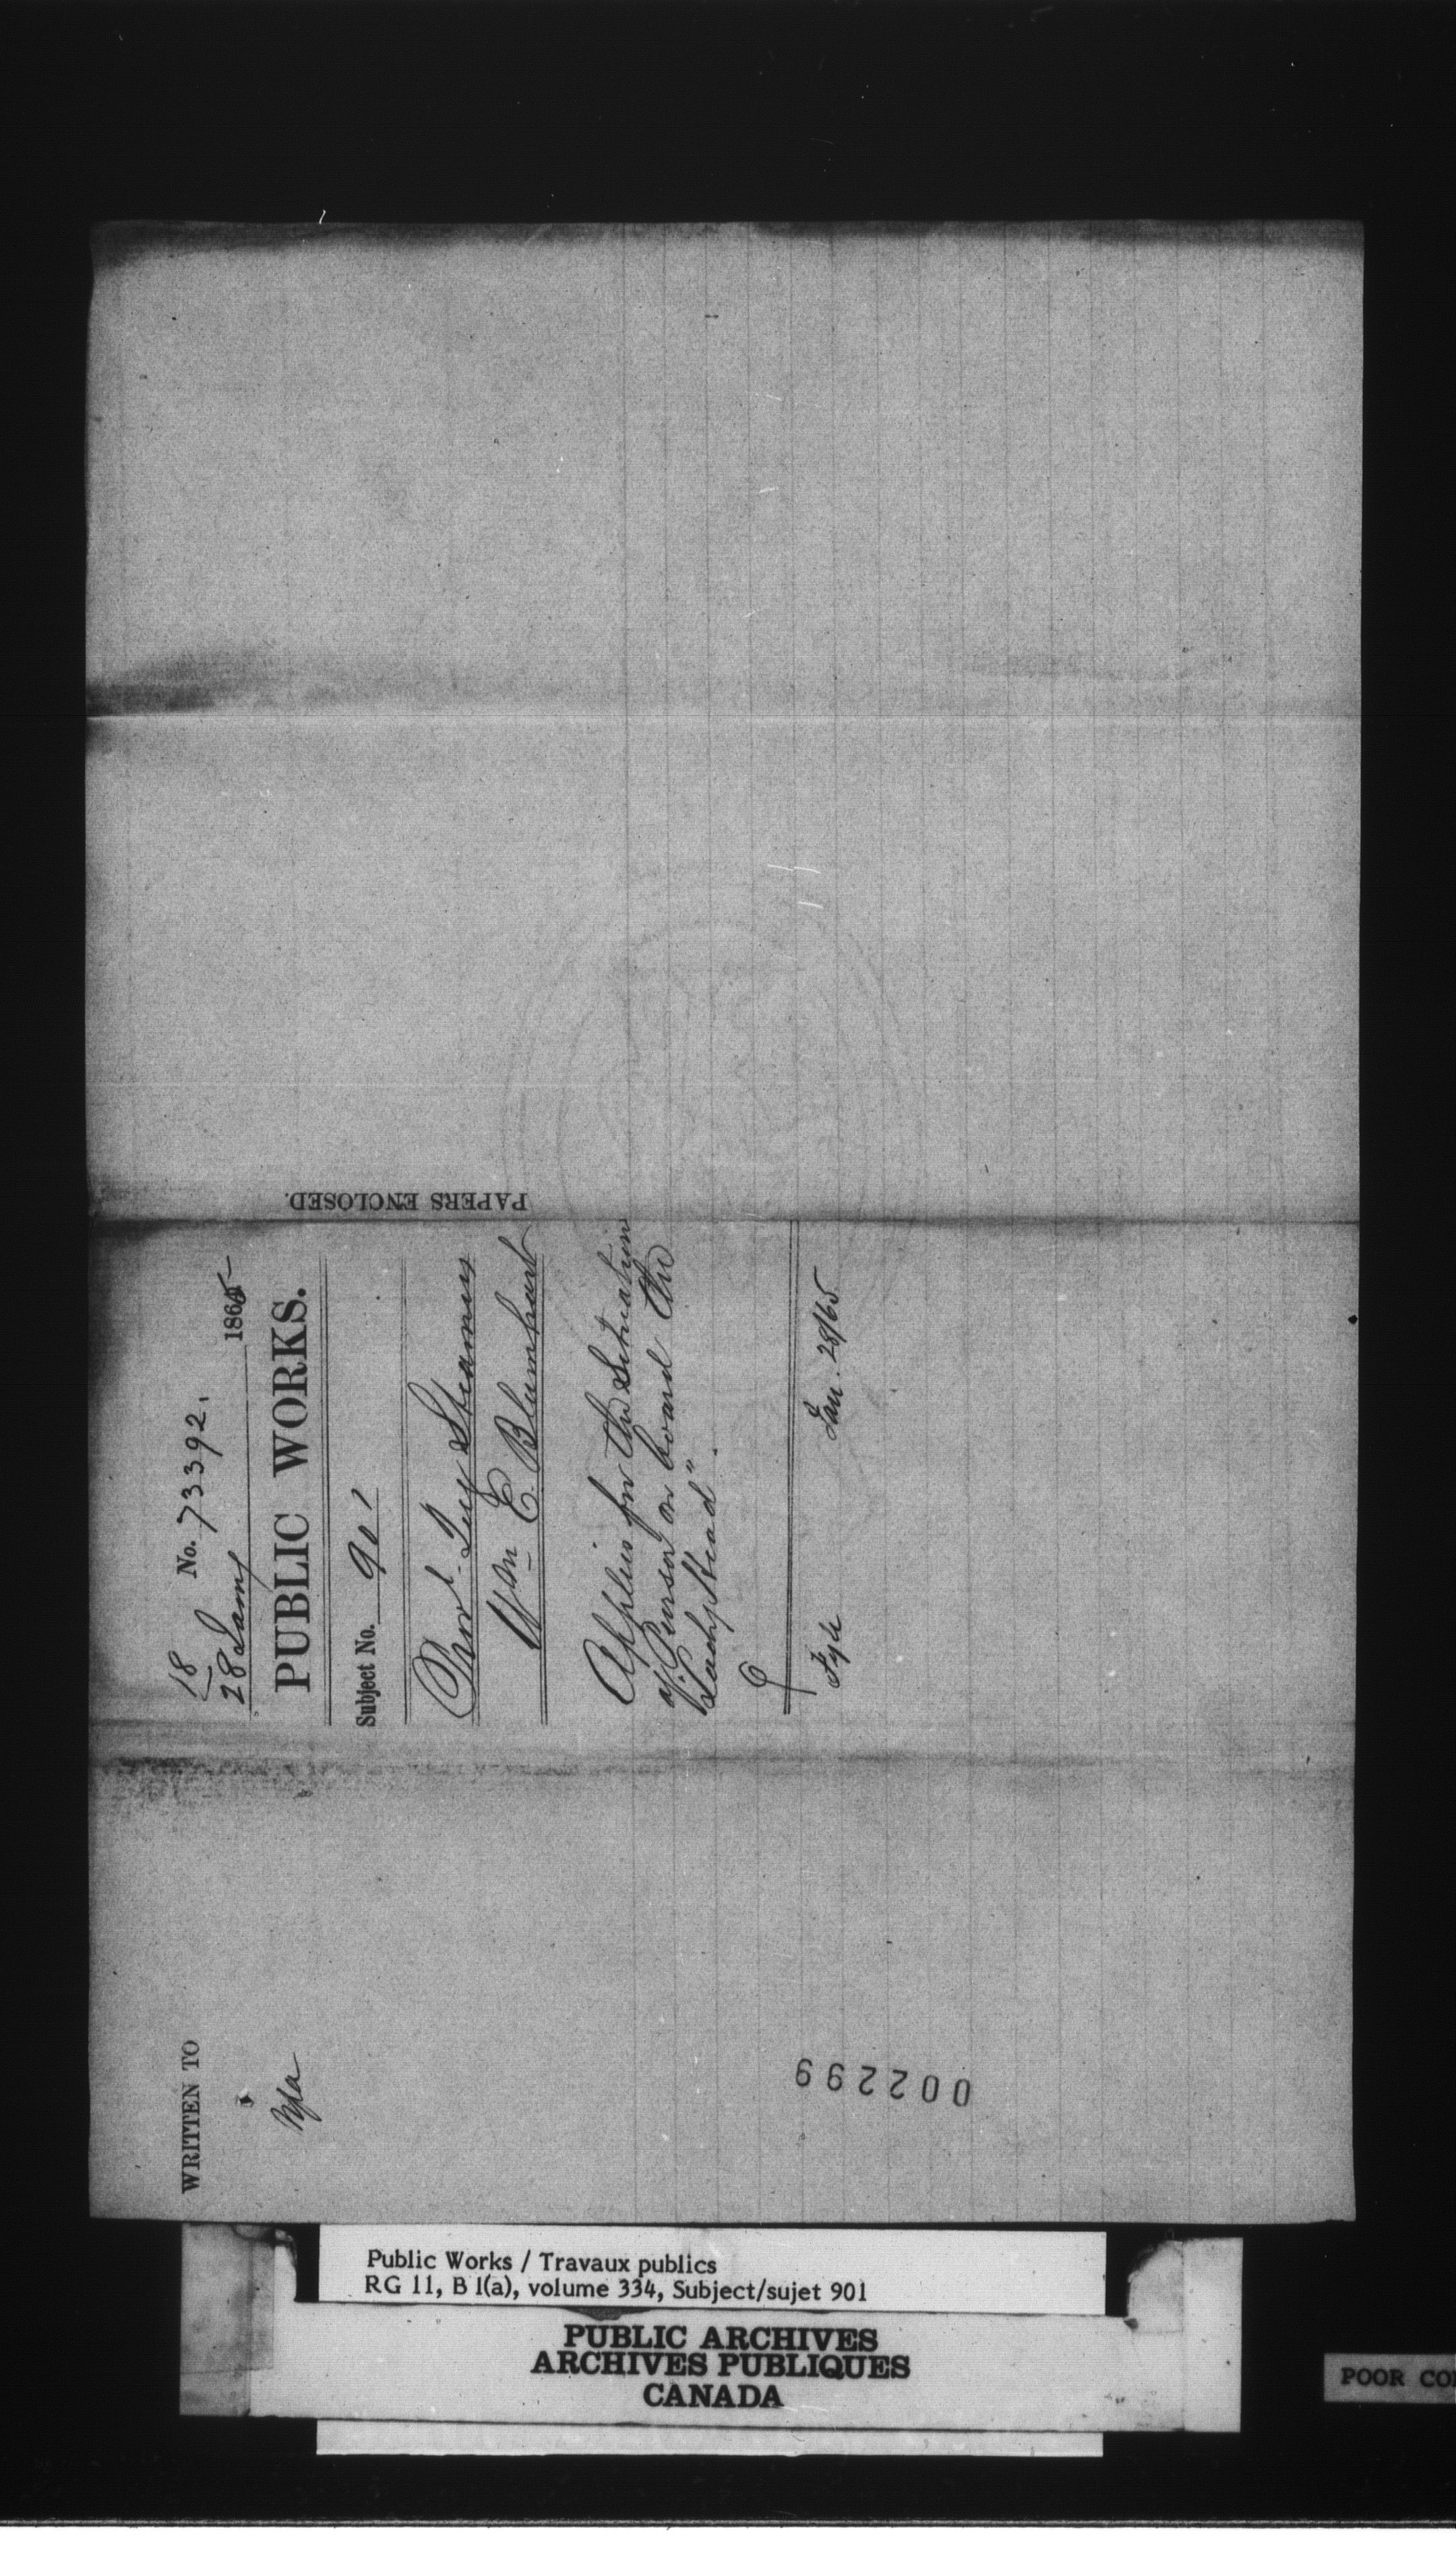 18 No. 73392.
28 Jany 1865
PUBLIC WORKS.
Subject No. 901
Prov l Tug Steamers
Wm E. Blumhart
Applies for the Situation
of Purser on board the
"Lady Head".
Fyle Jan. 28/65
PAPERS ENCLOSED.
WRITTEN TO
002299
Public Works / Travaux publics
RG 11, B 1(a), volume 334, Subject/sujet 901
PUBLIC ARCHIVES
ARCHIVES PUBLIQUES
CANADA
POOR CO